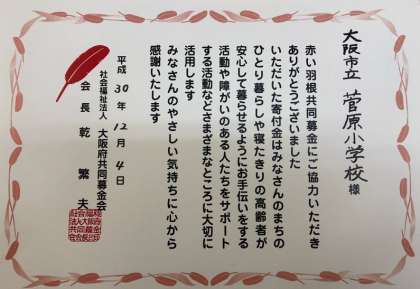 大阪市立 菅原小学校 様
赤い羽根共同募金にご協力いただき
ありがとうございました
いただいた寄付金はみなさんのまちの
ひとり暮らしや寝たきりの高齢者が
安心して暮らせるようにお手伝いをする
活動や障がいのある人たちをサポート
する活動などさまざまなところに大切に
活用します
みなさんのやさしい気持ちに心から
感謝いたします
平成 30 年 12 月 4 日
社会福祉法人 大阪府共同募金会
会長 乾 繁夫